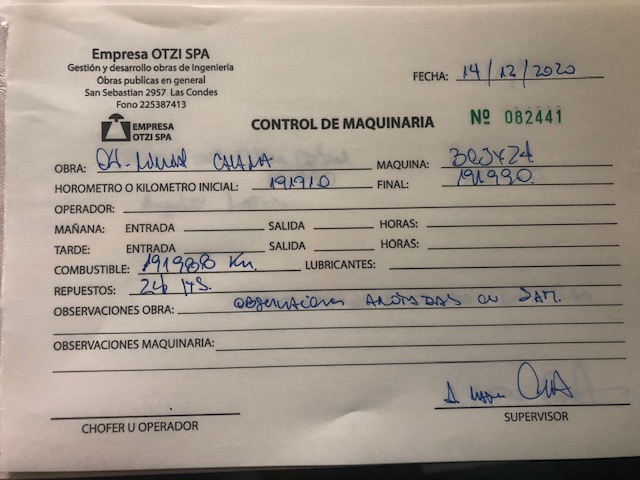 Empresa OTZI SPA
Gestión y desarrollo obras de Ingeniería
Obras publicas en general
San Sebastian 2957 Las Condes
Fono 225387413
FECHA: 14/12/2020
EMPRESA
OTZI SPA
CONTROL DE MAQUINARIA
Nº 082441
OBRA: CALAMA MAQUINA:
HOROMETRO O KILOMETRO INICIAL: 191910 FINAL: 191990
OPERADOR:
MAÑANA: ENTRADA SALIDA HORAS:
TARDE: ENTRADA SALIDA HORAS:
COMBUSTIBLE: Km. LUBRICANTES:
REPUESTOS:
OBSERVACIONES OBRA: observaciones ANOTADAS en
OBSERVACIONES MAQUINARIA:
CHOFER U OPERADOR
SUPERVISOR